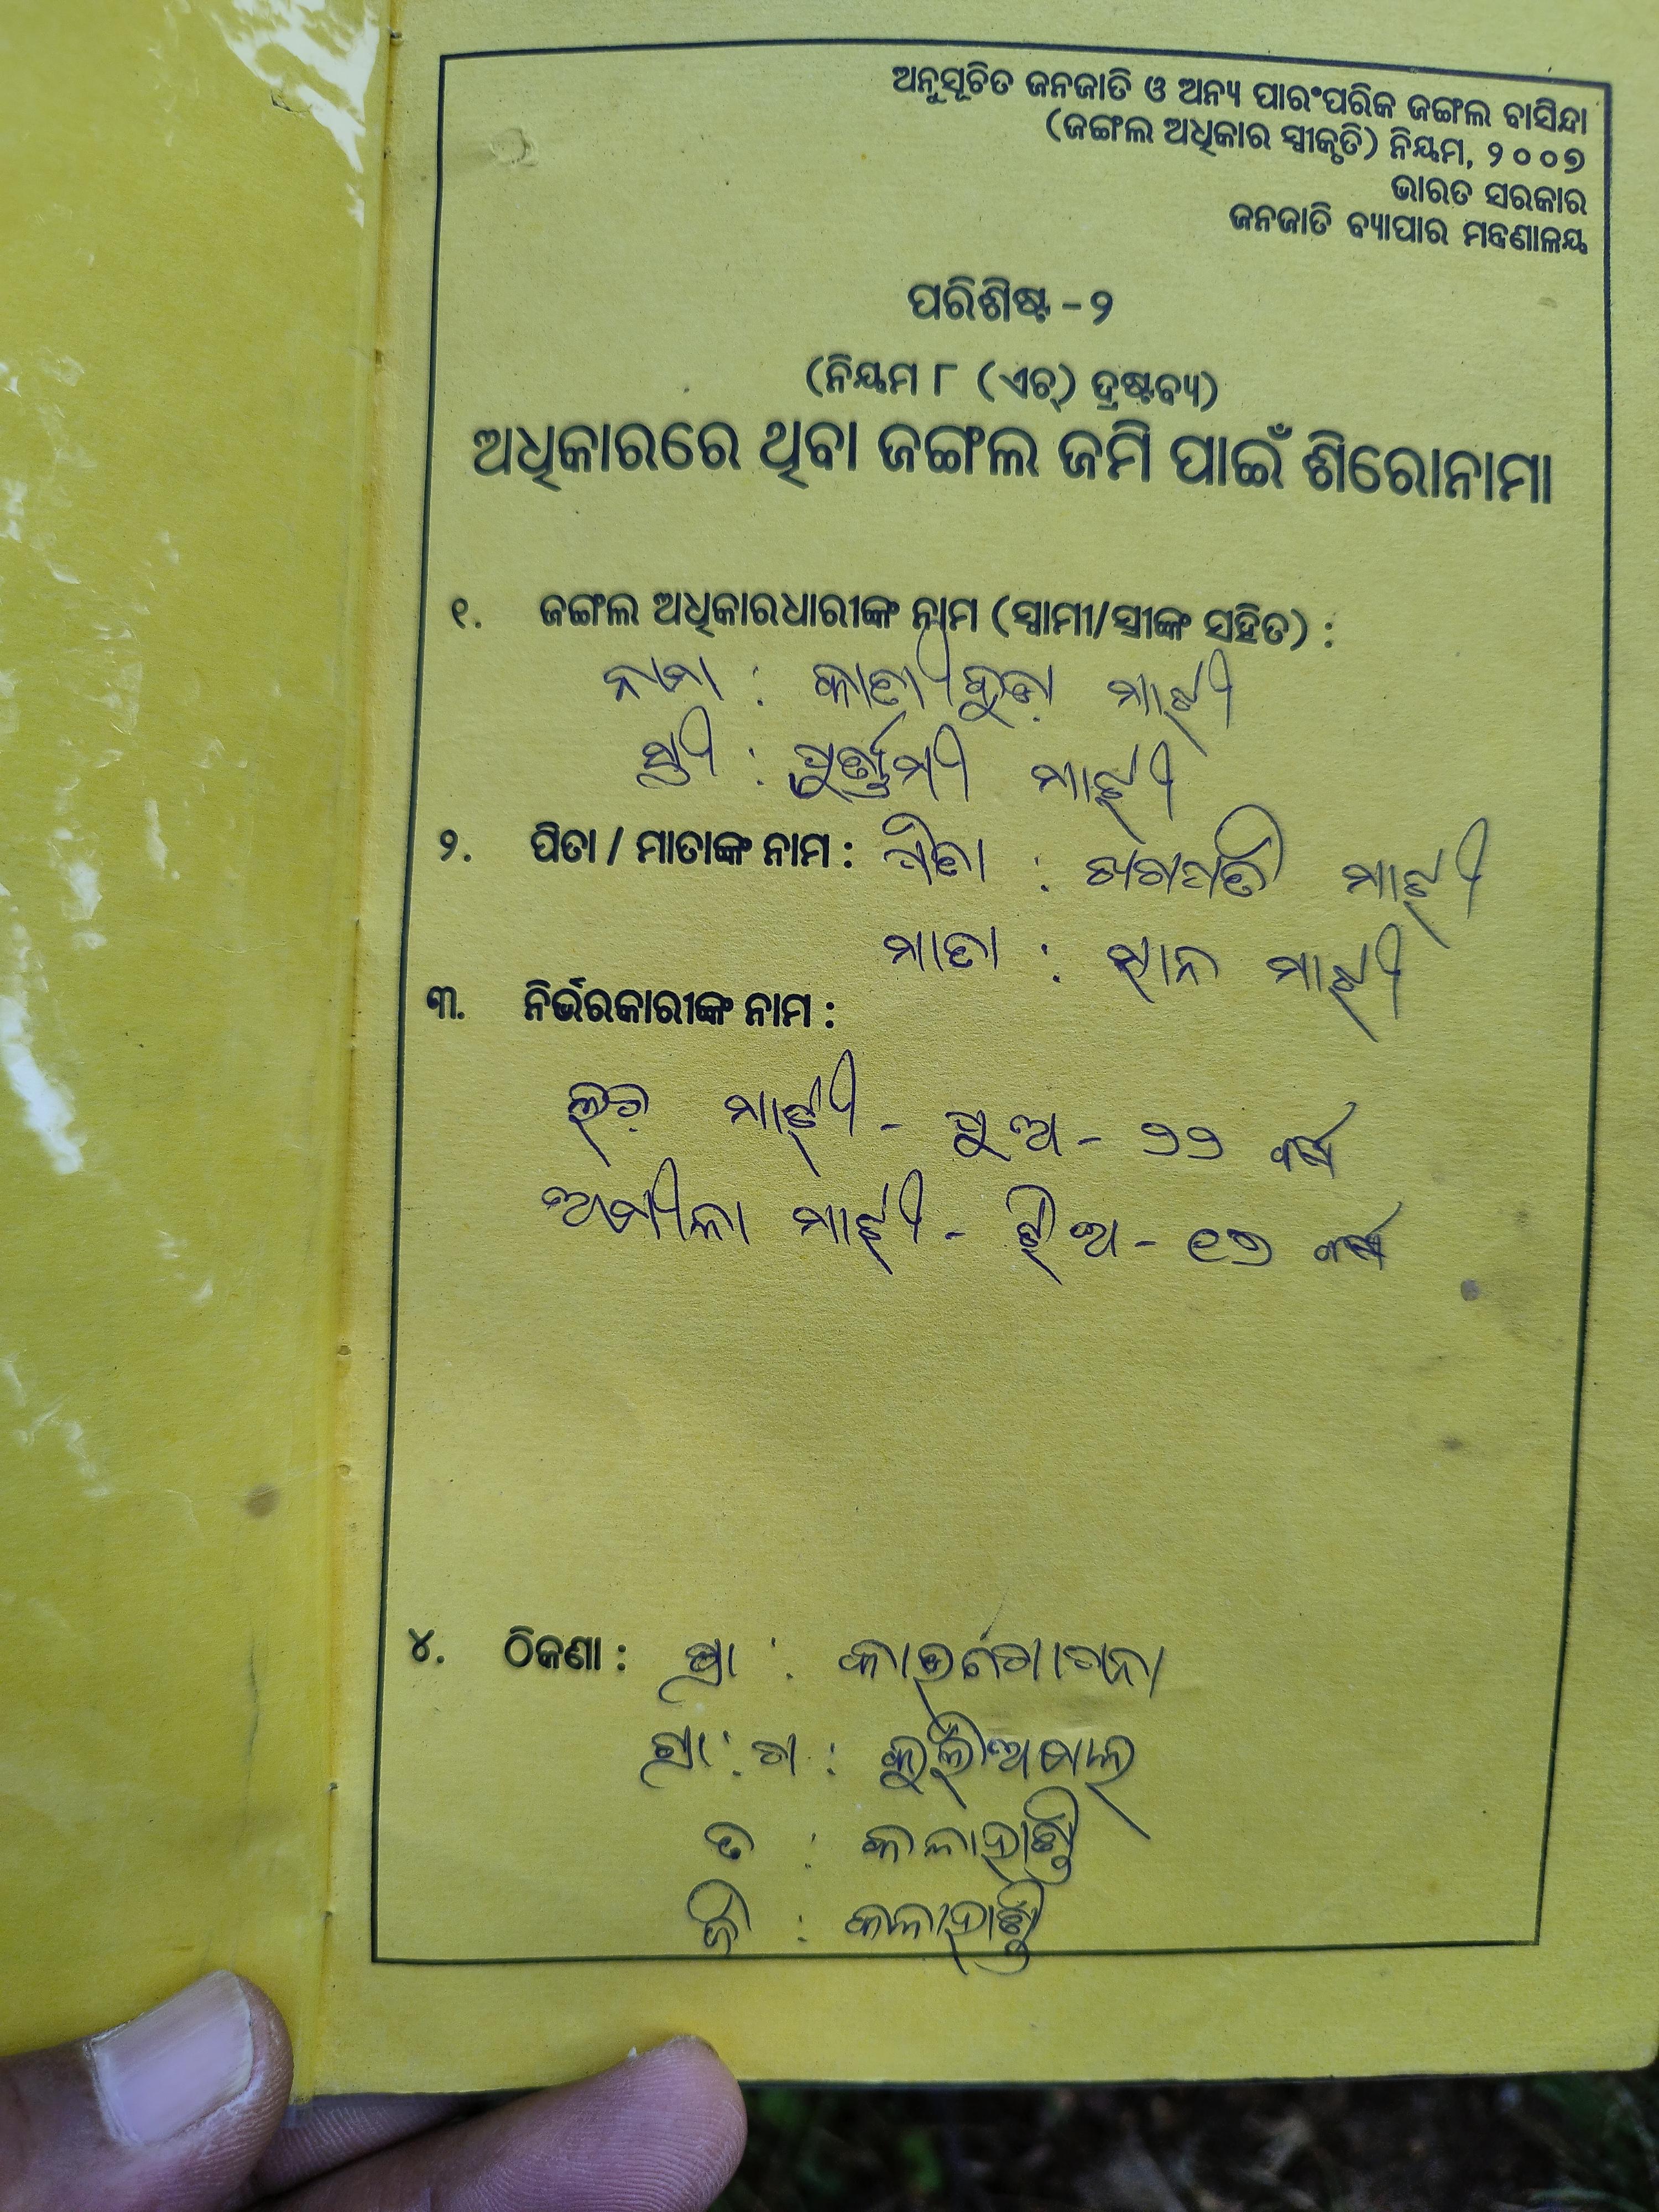 ଅନୁସୂଚିତ ଜନଜାତି ଓ ଅନ୍ୟ ପାରଂପରିକ ଜଙ୍ଗଲ ବାସିନ୍ଦା
(ଜଙ୍ଗଲ ଅଧିକାର ସ୍ୱୀକୃତି) ନିୟମ, ୨୦୦୭
ଭାରତ ସରକାର
ଜନଜାତି ବ୍ୟାପାର ମନ୍ତ୍ରଣାଳୟ
ପରିଶିଷ୍ଟ - ୨
(ନିୟମ ୮ (ଏଚ୍) ଦ୍ରଷ୍ଟବ୍ୟ)
ଅଧିକାରରେ ଥିବା ଜଙ୍ଗଲ ଜମି ପାଇଁ ଶିରୋନାମା
୧. ଜଙ୍ଗଲ ଅଧିକାରଧାରୀଙ୍କ ନାମ (ସ୍ୱାମୀ/ସ୍ତ୍ରୀଙ୍କ ସହିତ) :
ନାମ : ମାଝୀ
ସ୍ତ୍ରୀ : ମାଝୀ
୨. ପିତା / ମାତାଙ୍କ ନାମ : ପିତା : ମାଝୀ
ମାତା : ମାଝୀ
୩. ନିର୍ଭରକାରୀଙ୍କ ନାମ :
ମାଝୀ - ପୁଅ - ୨୨ ବର୍ଷ
ମାଝୀ - ଝିଅ - ୧୭ ବର୍ଷ
୪. ଠିକଣା :
ଗ୍ରା : ପ :
ତ : କଳାହାଣ୍ଡି
ଜି : କଳାହାଣ୍ଡି